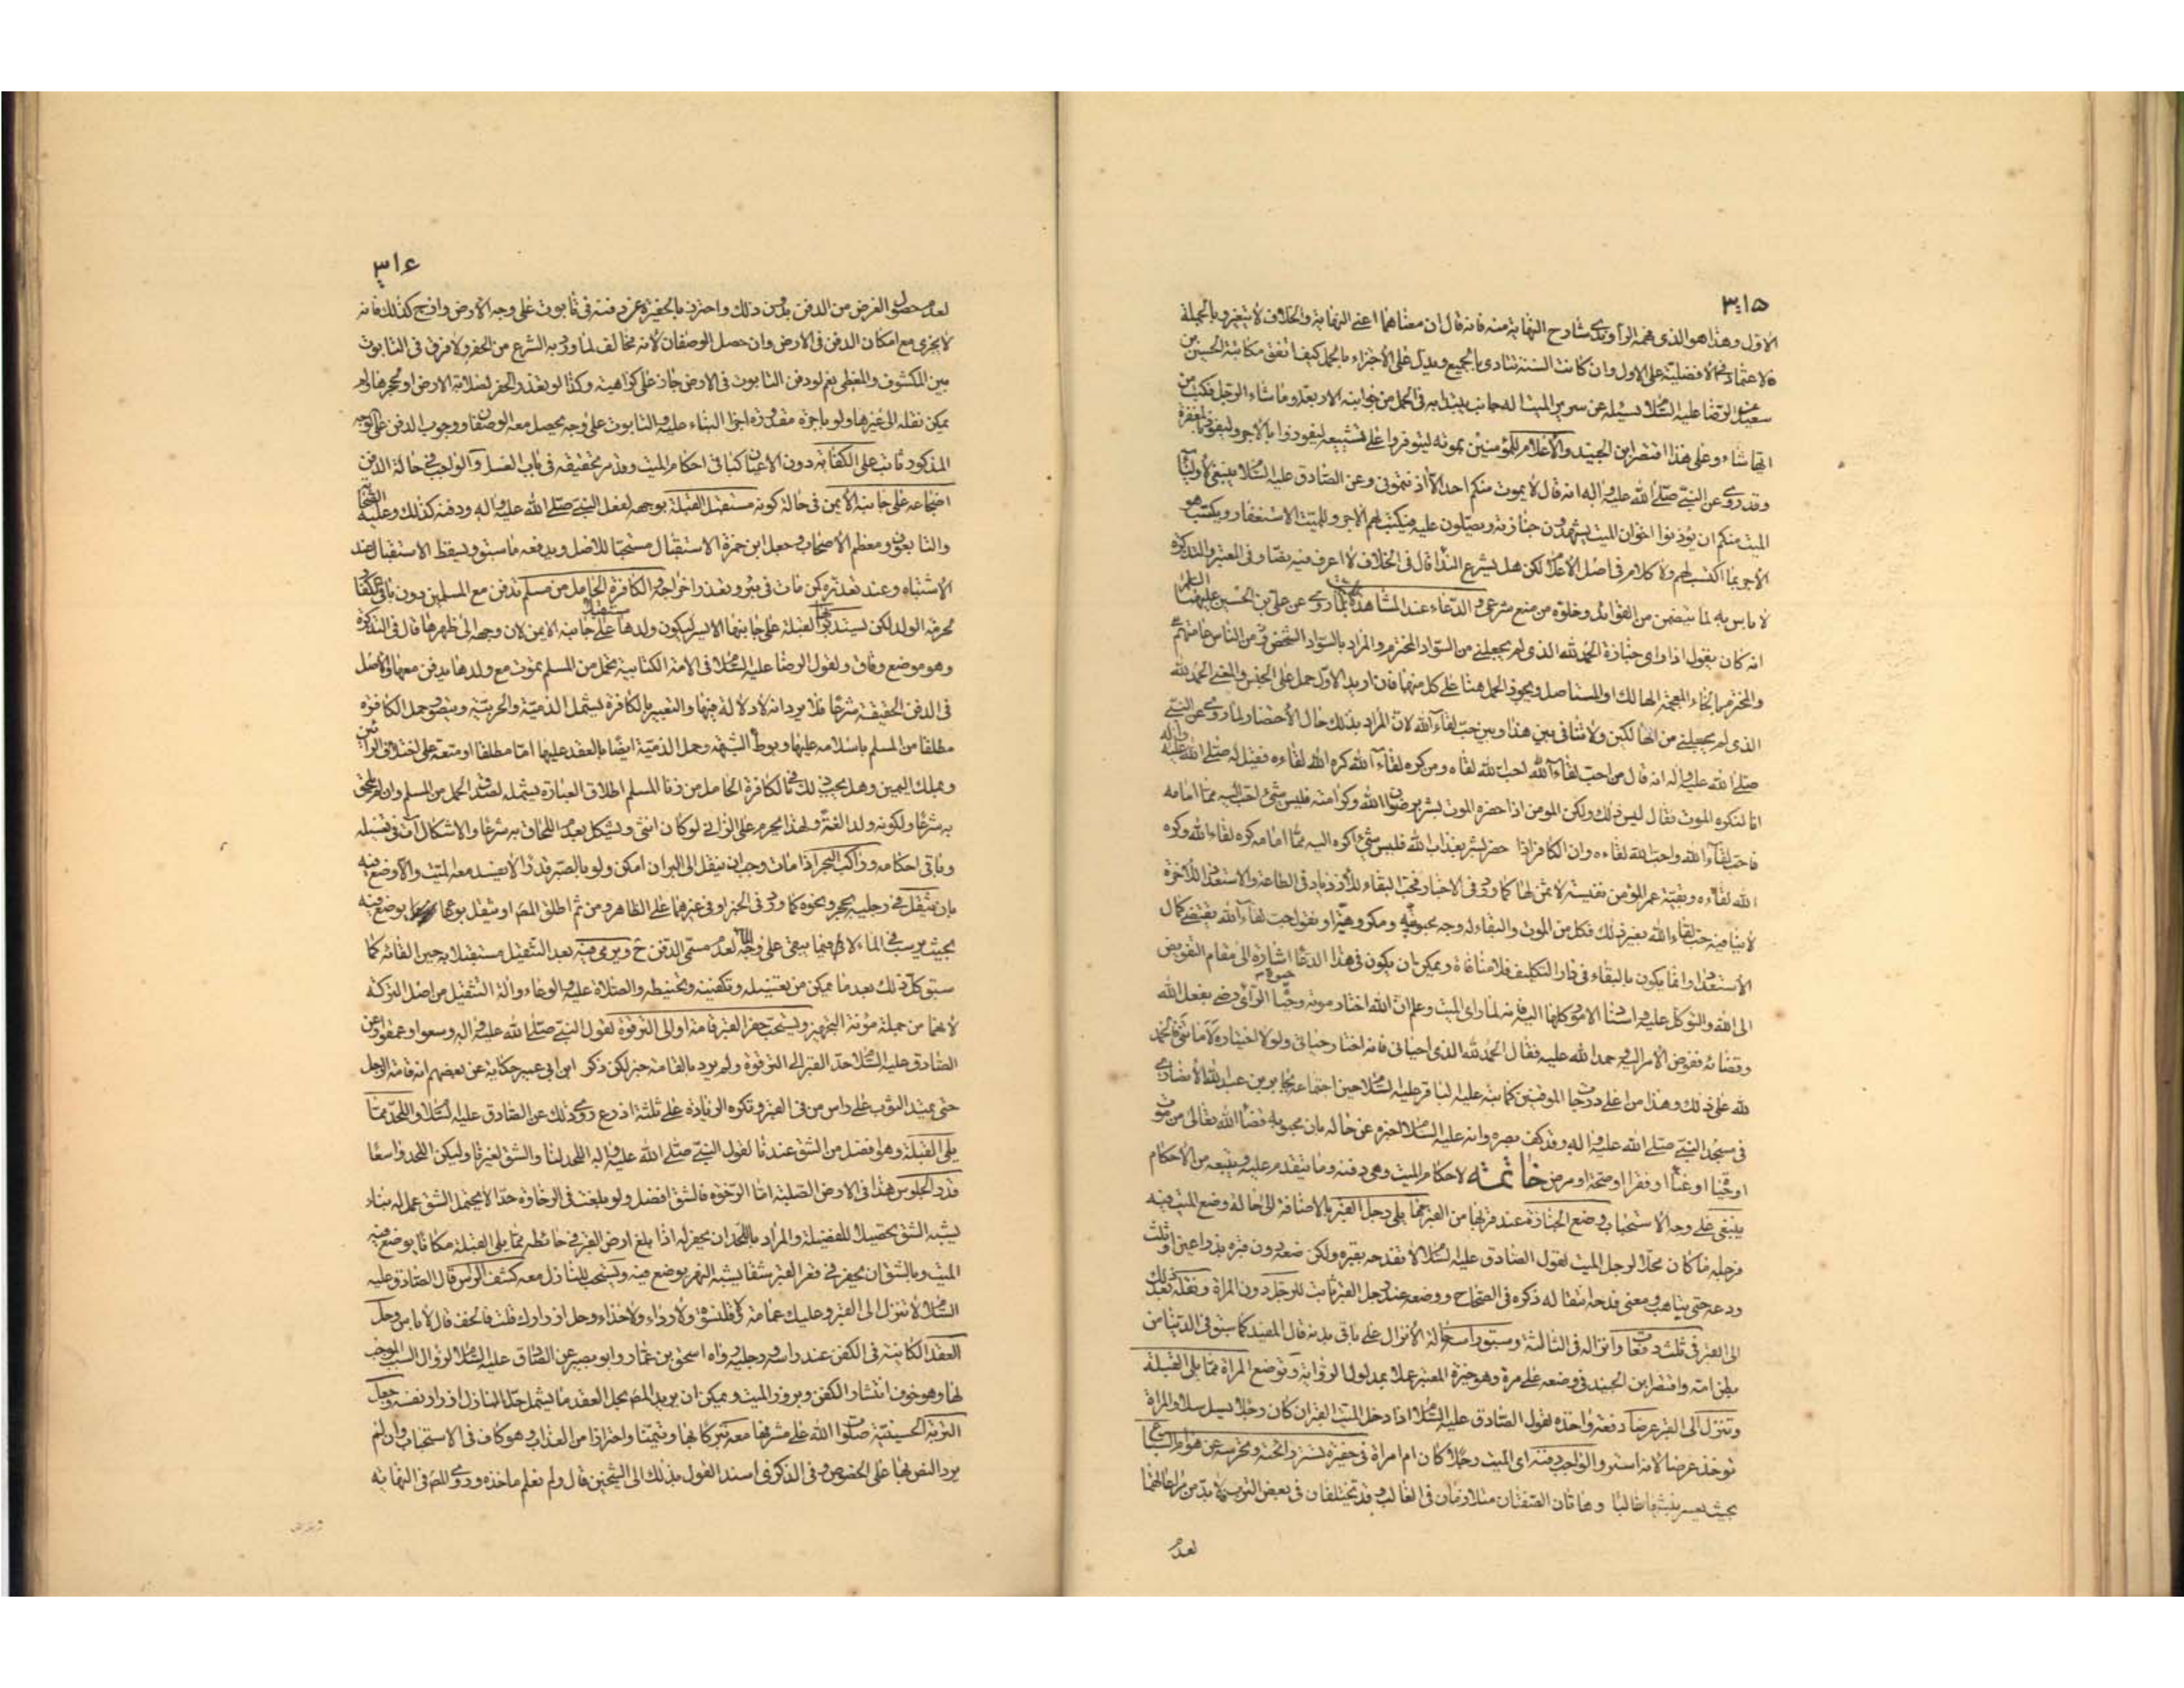 ٣١٥
الاول وهذا هو الذى فهمه الراوندى شارح النهاية منه فانه قال ان معناهما اعنى النهاية والخلاف لا يتغير وبالجملة
فالاعتماد فى الافضلية على الاول وان كانت السنة تتادى بالجميع ويدل على الاجزاء بالحمل كيف اتفق مكاتبة الحسين بن
سعيد الرضا عليه السلام يسئله عن سرير الميت اله جانب يبتدا به فى الحمل من جوانبه الاربعة وما شاء الرجل فكتب من
ايها شاء وعلى هذا اقتصر ابن الجنيد والاعلام للمؤمنين بموته ليتوفروا على تشييعه ليفوزوا بالاجر وليفوز بالمغفرة
وقد روى عن النبى صلى الله عليه واله انه قال لا يموت منكم احد الا اذنتمونى وعن الصادق عليه السلام ينبغى لاولياء
الميت منكم ان يؤذنوا اخوان الميت يشهدون جنازته ويصلون عليه فيكتب لهم الاجر وللميت الاستغفار ويكتسب هو
الاجر بما اكتسب لهم ولا كلام فى اصل الاعلام لكن هل يشرع النداء قال فى الخلاف لا اعرف فيه نصا وفى المعتبر والتذكرة
لا باس به لما يتضمن من الفوائد وخلوه من منع شرعى والدعاء عند المشاهدة بما روى عن على بن الحسين عليهما السلم
انه كان يقول اذا راى جنازة الحمد لله الذى لم يجعلنى من السواد المخترم والمراد بالسواد الشخص ومن الناس عامتهم
والمخترم بالخاء المعجمة الهالك او المستاصل ويجوز الحمل هنا على كل منهما فان اريد الاول حمل على الجنس والمعنى الحمد لله
الذى لم يجعلنى من الهالكين ولا تنافى بين هذا وبين حب لقاء الله لان المراد بذلك حال الاحتضار لما روى عن النبى
صلى الله عليه واله انه قال من احب لقاء الله احب الله لقاءه ومن كره لقاء الله كره الله لقاءه فقيل له صلى الله عليه واله
انا لنكره الموت فقال ليس ذلك ولكن المومن اذا حضره الموت بشر برضوان الله وكرامته فليس شئ احب اليه مما امامه
فاحب لقاء الله واحب الله لقاءه وان الكافر اذا حضر بشر بعذاب الله فليس شئ اكره اليه مما امامه كره لقاء الله وكره
الله لقاءه وبقية عمر المؤمن نفيسة لا ثمن لها كما ورد فى الاخبار فحب البقاء للازدياد فى الطاعة والاستعداد للاخرة
لا ينافيه حب لقاء الله بغير ذلك فكل من الموت والبقاء له وجه محبوبية ومكروهية او نقول حب لقاء الله يقتضى كمال
الاستعداد وانما يكون بالبقاء فى دار التكليف فلا منافاة ويمكن ان يكون فى هذا الدعاء اشارة الى مقام التفويض
الى الله والتوكل عليه واسناد الامور كلها اليه فانه لما راى الميت وعلم ان الله اختار موته وحيوة الرائى رضى بفعل الله
وقضائه ففوض الامر اليه وحمد الله عليه فقال الحمد لله الذى احيانى فانه اختار حياتى ولولا اختياره لاماتنى فالحمد
لله على ذلك وهذا من اعلى درجات الموقنين كما نبه عليه الباقر عليه السلام حين اجتماعه بجابر بن عبد الله الانصارى
فى مسجد النبى صلى الله عليه واله وقد كف بصره وانه عليه السلام اخبره عن حاله بان محبوبه قضاء الله تعالى من موت
او حيوة او غناء او فقر او صحة او مرض خاتمة لاحكام الميت وهى دفنه وما يتقدم عليه ويتبعه من الاحكام
ينبغى على وجه الاستحباب وضع الجنازة عند قربها من القبر مما يلى رجل القبر بالاضافة الى حالة وضع الميت فيه
فرجله ما كان محلا لرجل الميت لقول الصادق عليه السلام لا تفدحه بقبره ولكن ضعه دون قبره بذراعين او ثلث
ودعه حتى يتاهب ومعنى فدحه اثقاله ذكره فى الصحاح ووضعه عند رجل القبر ثابت للرجل دون المراة ونقله بعد ذلك
الى القبر فى ثلث دفعات وانزاله فى الثالثة وسبق راسه حالة الانزال على باقى بدنه قال المفيد كما سبق فى الدنيا من
بطن امه واقتصر ابن الجنيد فى وضعه على مرة وهو خيرة المعتبر عملا بمدلول الرواية وتوضع المراة مما يلى القبلة
وتنزل الى القبر عرضا دفعة واحدة لقول الصادق عليه السلام اذا دخل الميت القبر ان كان رجلا يسل سلا والمراة
توخذ عرضا لانه استر والواجب دفنه اى الميت رجلا كان ام امراة فى حفيرة تستر رائحته وتحرسه عن هوام السباع
بحيث يعسر نبشها غالبا وهاتان الصفتان متلازمتان فى الغالب وقد تختلفان فى بعض الترب فلا بد من مراعاتهما
لعدم
٣١٦
لعدم حصول الغرض من الدفن بدون ذلك واحترز بالحفيرة عن دفنه فى تابوت على وجه الارض وازج كذلك فانه
لا يجزى مع امكان الدفن فى الارض وان حصل الوصفان لانه مخالف لما ورد به الشرع من الحفر ولا فرق فى التابوت
بين المكشوف والمغطى نعم لو دفن التابوت فى الارض جاز على كراهية وكذا لو تعذر الحفر لصلابة الارض او تحجرها ولم
يمكن نقله الى غيرها ولو باجرة مقدورة اجزا البناء عليه والتابوت على وجه يحصل معه الوصفان ووجوب الدفن على الوجه
المذكور ثابت على الكفاية دون الاعيان كباقى احكام الميت وقد مر تحقيقه فى باب الغسل والواجب فى حالة الدفن
اضجاعه على جانبه الايمن فى حالة كونه مستقبل القبلة بوجهه لفعل النبى صلى الله عليه واله ودفنه كذلك وعليه الصحابة
والتابعون ومعظم الاصحاب وجعل ابن حمزة الاستقبال مستحبا للاصل ويدفعه ما سبق ويسقط الاستقبال عند
الاشتباه وعند تعذره كمن مات فى بئر وتعذر اخراجه والكافرة الحامل من مسلم تدفن مع المسلمين دون باقى الكفار
لحرمة الولد لكن يستدبر بها القبلة على جانبها الايسر ليكون ولدها مستقبلا على جانبه الايمن لان وجهه الى ظهرها قال فى التذكرة
وهو موضع وفاق ولقول الرضا عليه السلام فى الامة الكتابية تحمل من المسلم تموت مع ولدها يدفن معها والاصل
فى الدفن الحقيقة شرعا فلا يرد انه لا دلالة فيها والتعبير بالكافرة ليشمل الذمية والحربية ويتصور حمل الكافرة
مطلقا من المسلم باسلامه عليها وبوطئ الشبهة وحمل الذمية ايضا بالعقد عليها اما مطلقا او متعة على اختلاف الرايين
وبملك اليمين وهل يجب ذلك فى الكافرة الحامل من زنا المسلم اطلاق العبارة يشمله لصدق الحمل من المسلم وان لم يلحق
به شرعا ولكونه ولدا لغة ولهذا يحرم على الزانى لو كان انثى ويشكل بعدم اللحاق به شرعا والاشكال آت فى تغسيله
وباقى احكامه وراكب البحر اذا مات وجب ان ينقل الى البر ان امكن ولو بالصبر قدرا لا يفسد معه الميت والا وضع فيه
بان يثقل فى رجليه بحجر ونحوه كما ورد فى الخبر او فى غيرهما على الظاهر ومن ثم اطلق المص او يثقل بوعاء يوضع فيه
بحيث يرسب فى الماء لا فيما يبقى على وجه الماء لعدم مسمى الدفن ح ويرمى فيه بعد التثقيل مستقبلا به حين القائه كما
سبق كل ذلك بعد ما يمكن من تغسيله وتكفينه وتحنيطه والصلاة عليه والوعاء والة التثقيل من اصل التركة
لانهما من جملة مؤنة التجهيز ويستحب حفر القبر قامة او الى الترقوة لقول النبى صلى الله عليه واله وسعوا وعمقوا وعن
الصادق عليه السلام حد القبر الى الترقوة ولم يرد بالقامة خبر لكن ذكر ابن ابى عمير حكاية عن بعضهم انه قامة الرجل
حتى يمتد الثوب على راس من فى القبر وتكره الزيادة على ثلثة اذرع وروى ذلك عن الصادق عليه السلام واللحد مما
يلى القبلة وهو افضل من الشق عندنا لقول النبى صلى الله عليه واله اللحد لنا والشق لغيرنا وليكن اللحد واسعا
قدر الجلوس هذا فى الارض الصلبة اما الرخوة فالشق افضل ولو بلغت فى الرخاوة حدا لا يحتمل الشق عمل له بناء
يشبه الشق تحصيلا للفضيلة والمراد باللحد ان يحفر له اذا بلغ ارض القبر فى حائطه مما يلى القبلة مكانا يوضع فيه
الميت وبالشق ان يحفر فى قعر القبر شقا يشبه النهر يوضع فيه ويستحب للنازل معه كشف الراس قال الصادق عليه
السلام لا تنزل الى القبر وعليك عمامة ولا قلنسوة ولا رداء ولا حذاء وحل ازرارك قلت فالخف قال لا باس وحل
العقد الكائنة فى الكفن عند راسه ورجليه رواه اسحق بن عمار وابو بصير عن الصادق عليه السلام لزوال السبب الموجب
لها وهو خوف انتشار الكفن وبروز الميت ويمكن ان يريد المص بحل العقد ما يشمل حل النازل ازرار نفسه وجعل
التربة الحسينية صلوات الله على مشرفها معه تبركا بها وتيمنا واحترازا من العذاب وهو كاف فى الاستحباب وان لم
يرد النص بها على الخصوص وفى الذكرى اسند القول بذلك الى الشيخين قال ولم نعلم ماخذه وروى المص فى النهاية